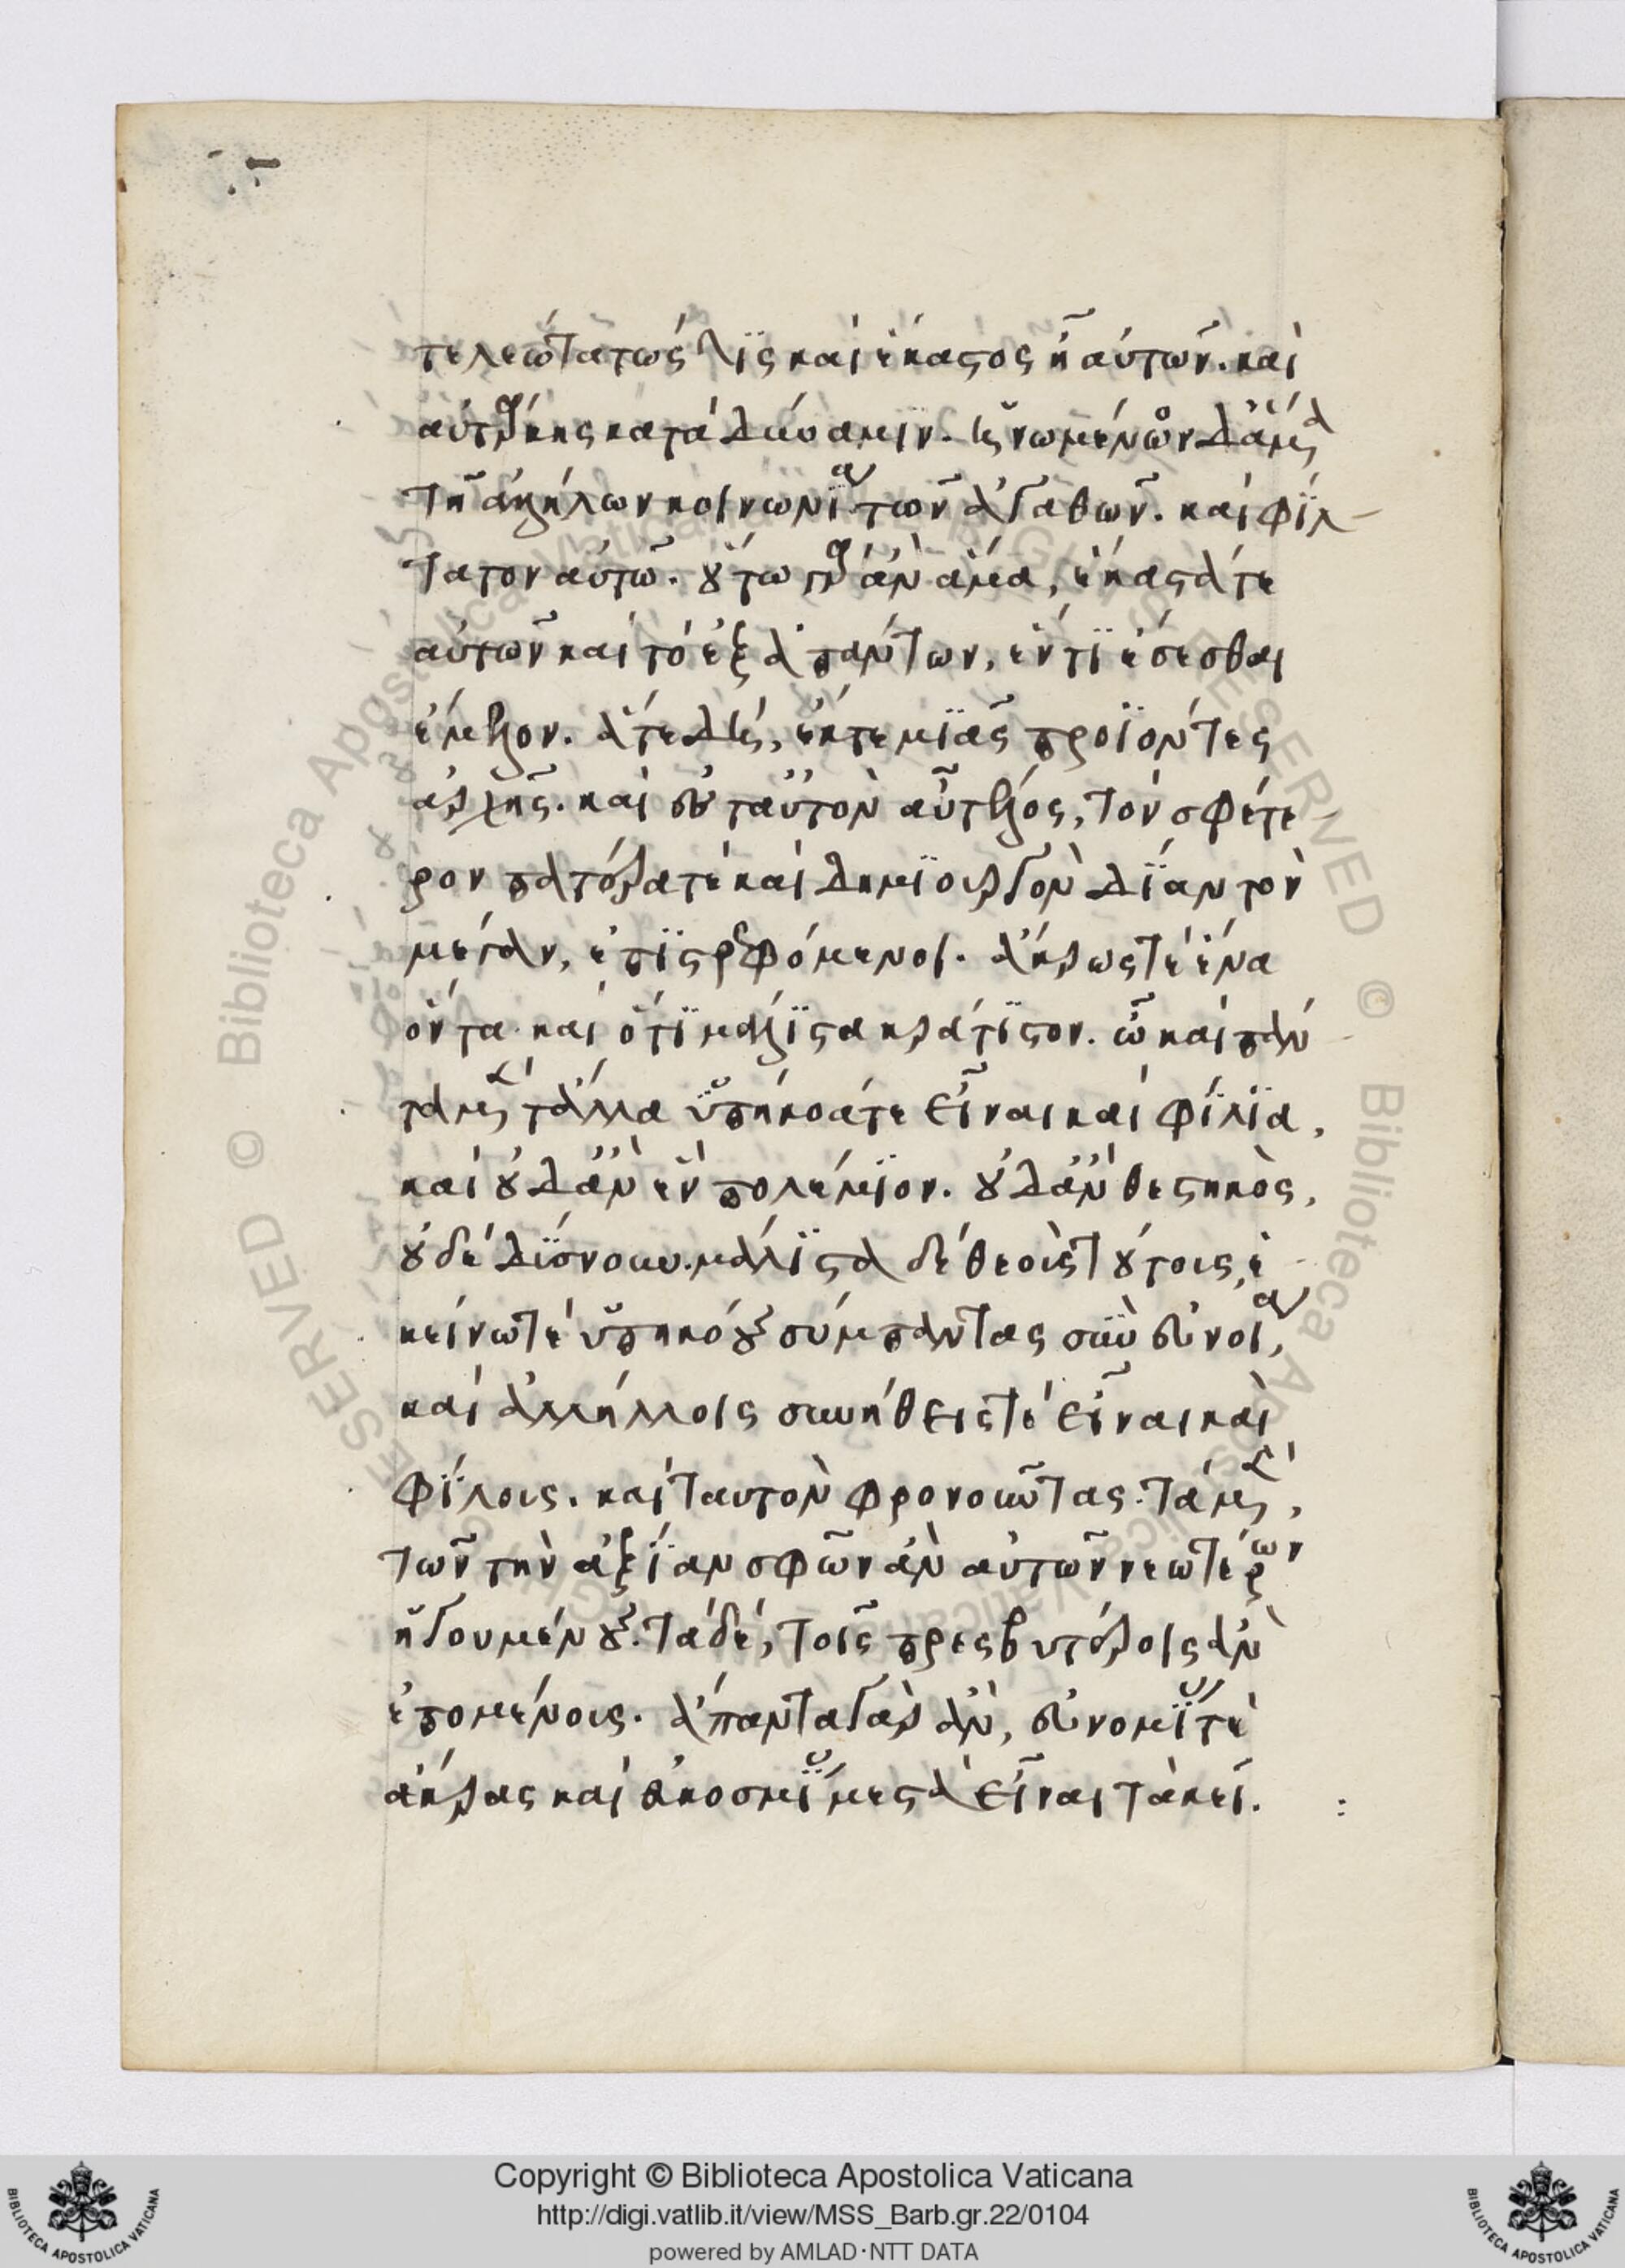 τελεώτατός τις καὶ ἕκαστος ᾖ αὐτῶν. καὶ
αὐτάρκης κατὰ δύναμιν. ἡνωμένον δ' ἅμα
τῇ ἀλλήλων κοινωνίᾳ τῶν ἀγαθῶν. καὶ φίλ-
τατον αὑτῷ. οὕτω γὰρ ἂν ἅμα, ἕκαστά τε
αὐτῶν καὶ τὸ ἐξ ἁπάντων, ἕν τι ἔσεσθαι
ἔμελλον. ἅτε δὴ, ἔκ τε μιᾶς προϊόντες
ἀρχῆς. καὶ εἰς ταὐτὸν αὖ τέλος, τὸν σφέτε-
ρον πατέρα τὲ καὶ δημιουργὸν Δία τὸν
μέγαν, ἐπιστρεφόμενοι. ἄκρως τὲ ἕνα
ὄντα καὶ ὅτι μάλιστα κράτιστον. ᾧ καὶ πάν
τα μετὰ τἄλλα ὑπήκοά τε εἶναι καὶ φίλια,
καὶ οὐδ' ἂν ἓν πολέμιον. οὐδ' ἂν θεστηκὸς,
οὐδὲ διάνουν. μάλιστα δὲ θεοὺς τούτους, ἐ
κείνῳ τὲ ὑπηκόους σύμπαντας σὺν εὐνοίᾳ,
καὶ ἀλλήλοις συνήθεις τὲ εἶναι καὶ
φίλους. καὶ ταυτὸν φρονοῦντας. τὰ μὲν,
τῶν τὴν ἀξίαν σφῶν ἂν αὐτῶν νεωτέρων
ἡγουμένους. τὰ δὲ, τοῖς πρεσβυτέροις ἂν
ἑπομένους. ἅπαντα γὰρ ἂν, εὐνομίας τὲ
ἄκρας καὶ εὐκοσμίας μεστὰ εἶναι τἀκεῖ.
Copyright © Biblioteca Apostolica Vaticana
http://digi.vatlib.it/view/MSS_Barb.gr.22/0104
powered by AMLAD·NTT DATA